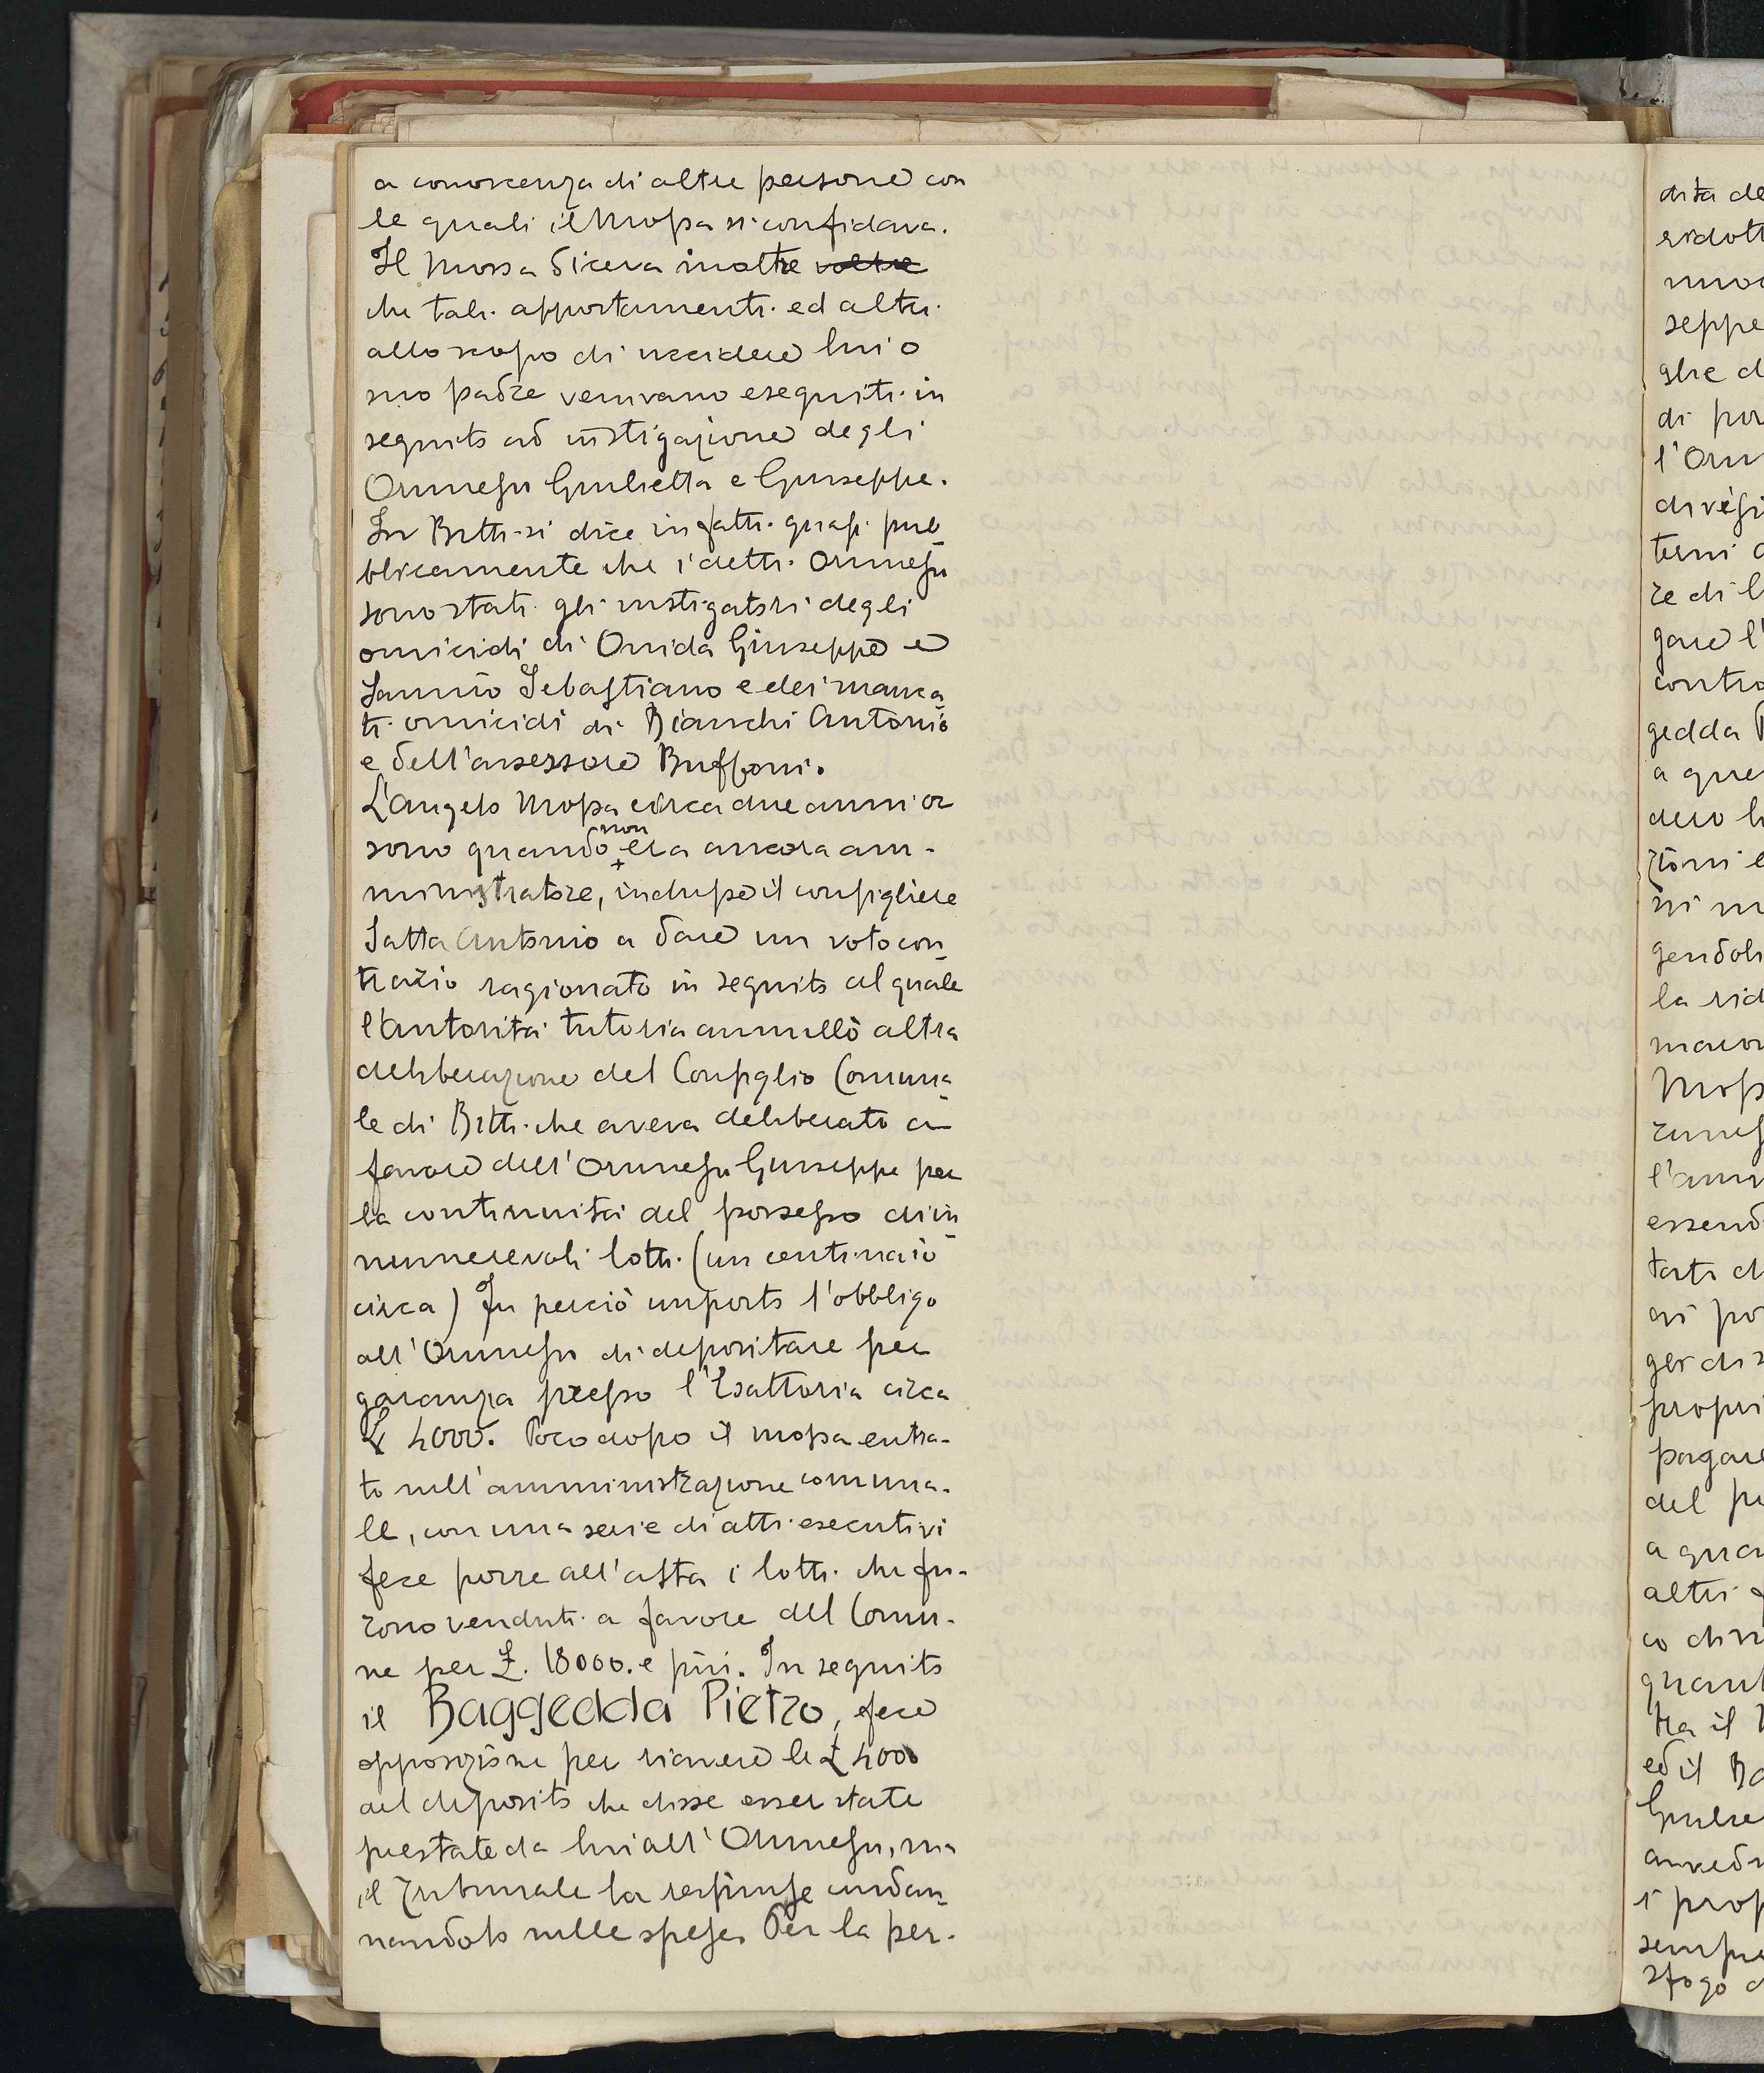 a conoscenza di altre persone con
le quali il Mossa si confidava.
Il Mossa diceva inoltre voltre
che tali appostamenti ed altri
allo scopo di uccidere lui o
suo padre venivano eseguiti in
seguito ad instigazione degli
Orunesu Giulietta e Giuseppe.
In Bitti si dice infatti quasi pub
blicamente che i detti Orunesu
sono stati gli instigatori degli
omicidi di Onida Giuseppe e
Sannio Sebastiano e dei manca
ti omicidi di Bianchi Antonio
e dell'assessore Buffoni.
L'Angelo Mossa circa due anni or
sono quando non era ancora am-
ministratore, indusse il consigliere
Satta Antonio a dare un voto con
trario ragionato in seguito al quale
l'Autorità tutoria annullò altra
deliberazione del Consiglio Comuna
le di Bitti che aveva deliberato a
favore dell'Orunesu Giuseppe per
la continuità del possesso di in
numerevoli lotti (un centinaio
circa) Fu perciò imposto l'obbligo
all'Orunesu di depositare per
garanzia presso l'Esattoria circa
£ 4000. Poco dopo il Mossa entra-
to nell'amministrazione comuna-
le, con una serie di atti esecutivi
fece porre all'asta i lotti che fu-
rono venduti a favore del Comu-
ne per £. 18000. e più. In seguito
il Baggedda Pietro, fece
opposizione per riavere le £ 4000
del deposito che disse esser state
prestate da lui all'Orunesu, ma
il Tribunale la respinse condan
nandolo nelle spese. Per la per-
dita de
ridott
nuo
seppe
glie d
di por
l'Oru
terni
re di l
gare l'
contro
gedda P
a que
dero l
zioni e
ni
gendoli
la rid
Moss
l'amm
essend
tati d
ai po
propri
pagare
del p
a qua
altri f
co di
quant
tra il
ed il Ba
Giulie
i prop
sempre
sfogo